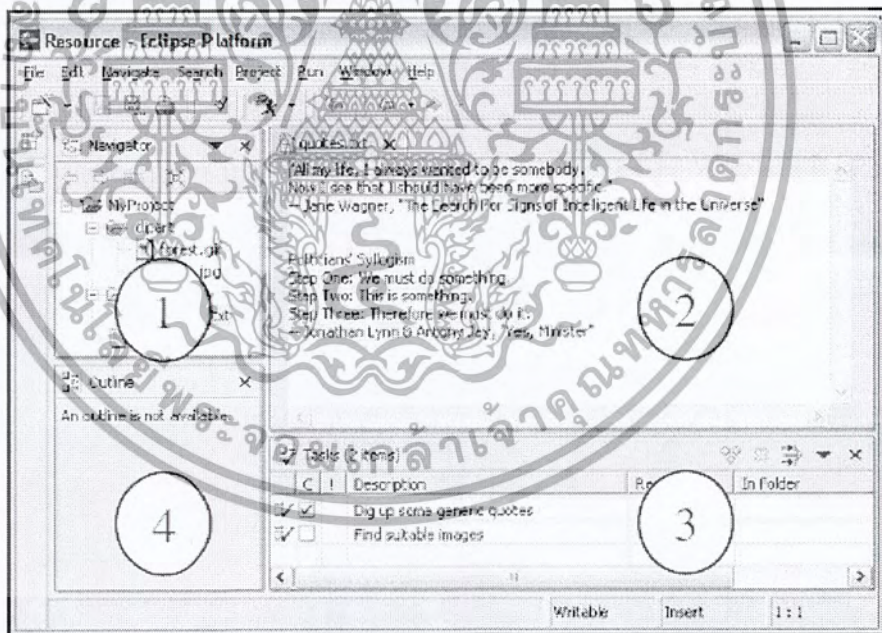 Resource - Eclipse Platform
File Edit Navigate Search Project Run Window Help
Navigator
MyProject
clipart
forest.gif
.jpg
1
quotes.txt
"All my life, I always wanted to be somebody.
Now I see that I should have been more specific."
-- Jane Wagner, "The Search For Signs of Intelligent Life in the Universe"
Politicians' Syllogism
Step One: We must do something.
Step Two: This is something.
Step Three: Therefore we must do it.
-- Jonathan Lynn & Antony Jay, "Yes, Minister"
2
Outline
An outline is not available.
4
Tasks (2 items)
C ! Description Re In Folder
Dig up some generic quotes
Find suitable images
3
Writable Insert 1 : 1
พระจอมเกล้าเจ้าคุณทหารลาดกระบัง